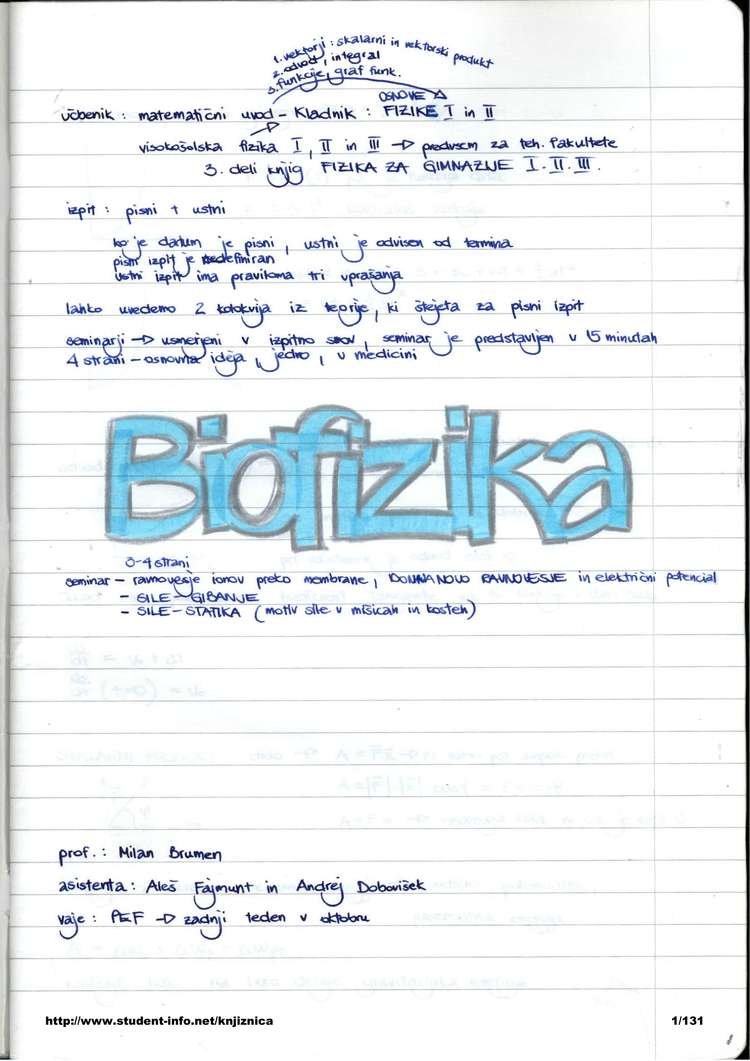 1. vektorji : skalarni in vektorski produkt
2. odvod, integral
3. funkcije, graf funk.
OSNOVE
učbenik : matematični uvod – Kladnik : FIZIKE I in II
visokošolska fizika I, II in III → predvsem za teh. fakultete
3. deli knjig FIZIKA ZA GIMNAZIJE I. II. III.
izpit : pisni + ustni
ko je datum je pisni, ustni je odvisen od termina
pisni izpit je definiran
ustni izpit ima praviloma tri vprašanja
lahko uvedemo 2 kolokvija iz teorije, ki štejeta za pisni izpit
seminarji → usmerjeni v izpitno snov, seminar je predstavljen v 15 minutah
4 strani – osnovna ideja, jedro, v medicini
Biofizika
3-4 strani
seminar – ravnovesje ionov preko membrane, DONNANOVO RAVNOVESJE in električni potencial
– SILE – GIBANJE
– SILE – STATIKA (motiv sile v mišicah in kosteh)
prof. : Milan Brumen
asistenta : Aleš Fajmunt in Andrej Dobovišek
vaje : PEF → zadnji teden v oktobru
http://www.student-info.net/knjiznica 1/131
1